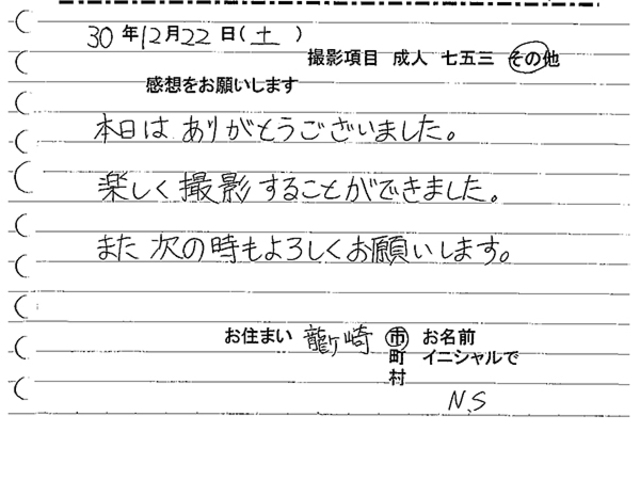 30年12月22日(土)
撮影項目 成人 七五三 その他
感想をお願いします
本日は ありがとうございました。
楽しく撮影することができました。
また 次の時もよろしくお願いします。
お住まい 龍ヶ崎 市 お名前
町 イニシャルで
村
N.S